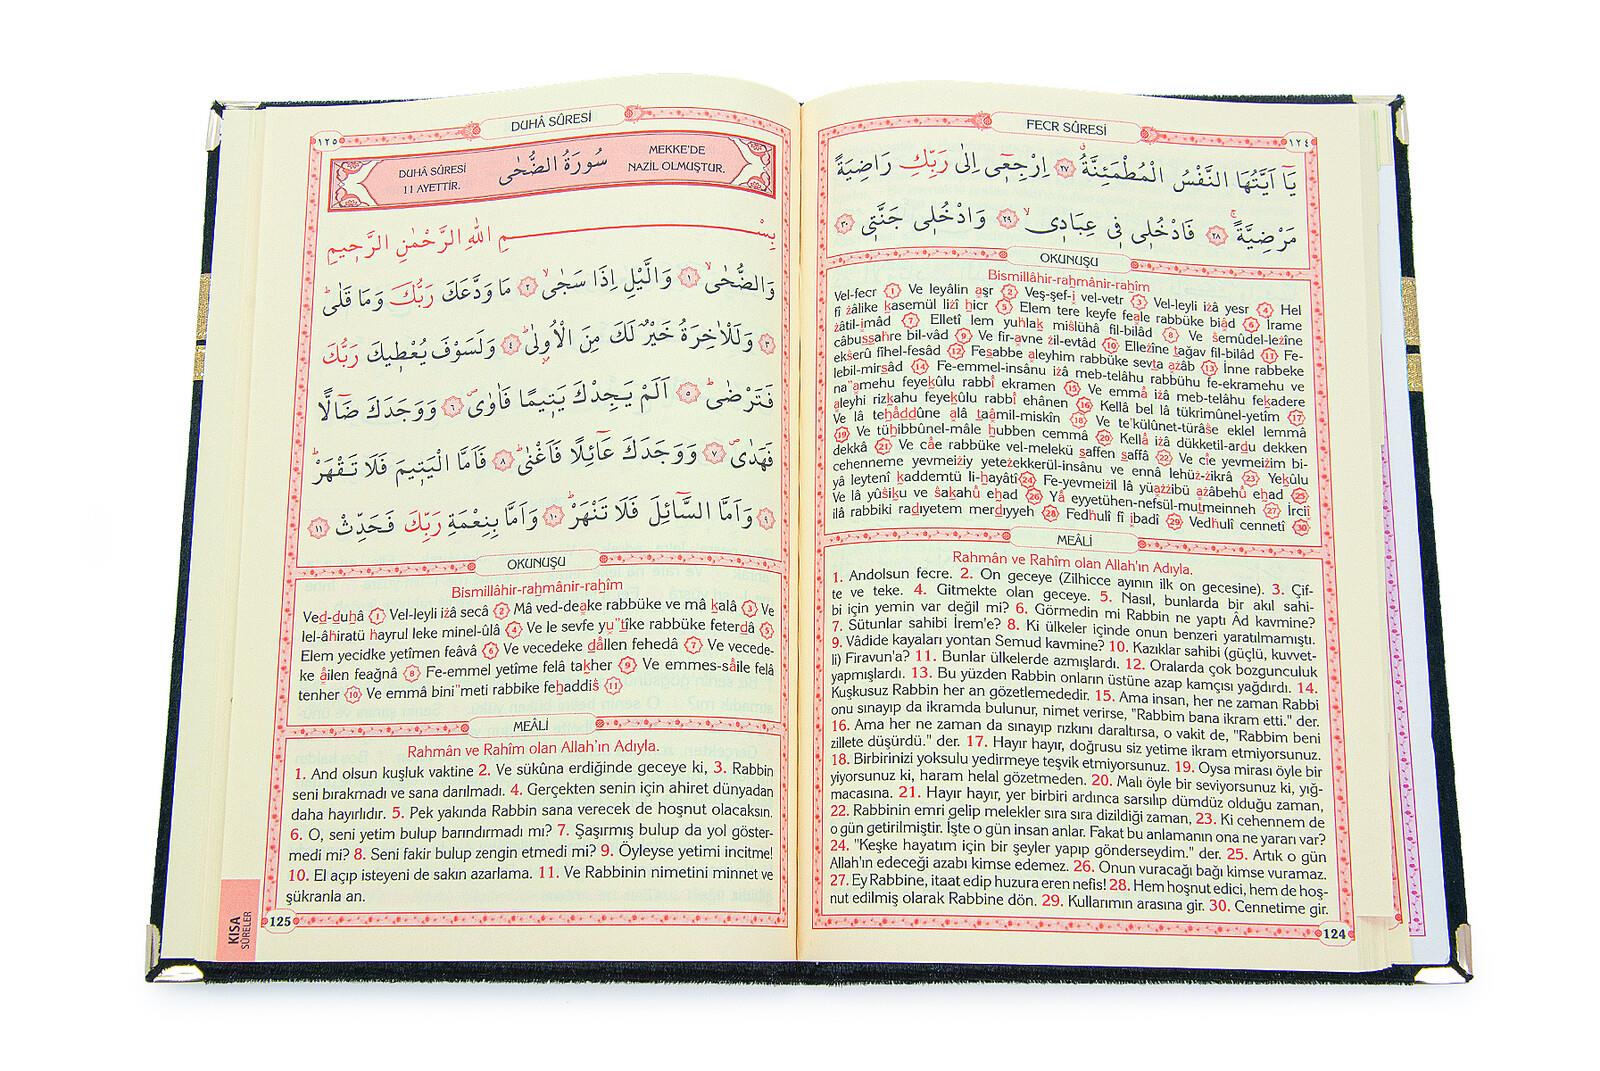 FECR SÛRESİ
١٢٤
يَٓا اَيَّتُهَا النَّفْسُ الْمُطْمَئِنَّةُۗ ﴿٢٧﴾ اِرْجِعٖٓي اِلٰى رَبِّكِ رَاضِيَةً
مَرْضِيَّةًۚ ﴿٢٨﴾ فَادْخُلٖي فٖي عِبَادٖيۙ ﴿٢٩﴾ وَادْخُلٖي جَنَّتٖي ﴿٣٠﴾
OKUNUŞU
Bismillâhir-rahmânir-rahîm
Vel-fecr 1 Ve leyâlin aşr 2 Veş-şef-i vel-vetr 3 Vel-leyli iżâ yesr 4 Hel
fî żâlike kasemül liżî hicr 5 Elem tere keyfe feale rabbüke biâd 6 İrame
żâtil-imâd 7 Elletî lem yuhlak miślühâ fil-bilâd 8 Ve śemûdel-leżîne
câbussahre bil-vâd 9 Ve fir-avne żil-evtâd 10 Elleżîne tağav fil-bilâd 11 Fe-
ekśerû fîhel-fesâd 12 Fesabbe aleyhim rabbüke sevta ażâb 13 İnne rabbeke
lebil-mirsâd 14 Fe-emmel-insânu iżâ meb-telâhu rabbühu fe-ekramehu ve
na"amehu feyekûlu rabbî ekramen 15 Ve emmâ iżâ meb-telâhu fekadere
aleyhi rizkahu feyekûlu rabbî ehânen 16 Kellâ bel lâ tükrimûnel-yetîm 17
Ve lâ tehâddûne alâ taâmil-miskîn 18 Ve te'külûnet-türâśe eklel lemmâ
19 Ve tühibbûnel-mâle hubben cemmâ 20 Kellâ iżâ dükketil-ardu dekken
dekkâ 21 Ve câe rabbüke vel-melekü saffen saffâ 22 Ve cîe yevmeiżim bi-
cehenneme yevmeiżiy yeteżekkerül-insânu ve ennâ lehüż-żikrâ 23 Yekûlu
yâ leytenî kaddemtü li-hayâtî 24 Fe-yevmeiżil lâ yüażżibü ażâbehû ehad 25
Ve lâ yûśiku ve śakahû ehad 26 Yâ eyyetühen-nefsül-mutmeinneh 27 İrciî
ilâ rabbiki radiyetem merdıyyeh 28 Fedhulî fî ibadî 29 Vedhulî cennetî 30
MEÂLİ
Rahmân ve Rahîm olan Allah'ın Adıyla.
1. Andolsun fecre. 2. On geceye (Zilhicce ayının ilk on gecesine). 3. Çif-
te ve teke. 4. Gitmekte olan geceye. 5. Nasıl, bunlarda bir akıl sahi-
bi için yemin var değil mi? 6. Görmedin mi Rabbin ne yaptı Âd kavmine?
7. Sütunlar sahibi İrem'e? 8. Ki ülkeler içinde onun benzeri yaratılmamıştı.
9. Vâdide kayaları yontan Semud kavmine? 10. Kazıklar sahibi (güçlü, kuvvet-
li) Firavun'a? 11. Bunlar ülkelerde azmışlardı. 12. Oralarda çok bozgunculuk
yapmışlardı. 13. Bu yüzden Rabbin onların üstüne azap kamçısı yağdırdı. 14.
Kuşkusuz Rabbin her an gözetlemededir. 15. Ama insan, her ne zaman Rabbi
onu sınayıp da ikramda bulunur, nimet verirse, "Rabbim bana ikram etti." der.
16. Ama her ne zaman da sınayıp rızkını daraltırsa, o vakit de, "Rabbim beni
zillete düşürdü." der. 17. Hayır hayır, doğrusu siz yetime ikram etmiyorsunuz.
18. Birbirinizi yoksulu yedirmeye teşvik etmiyorsunuz. 19. Oysa mirası öyle bir
yiyorsunuz ki, haram helal gözetmeden. 20. Malı öyle bir seviyorsunuz ki, yığ-
macasına. 21. Hayır hayır, yer birbiri ardınca sarsılıp dümdüz olduğu zaman,
22. Rabbinin emri gelip melekler sıra sıra dizildiği zaman, 23. Ki cehennem de
o gün getirilmiştir. İşte o gün insan anlar. Fakat bu anlamanın ona ne yararı var?
24. "Keşke hayatım için bir şeyler yapıp gönderseydim." der. 25. Artık o gün
Allah'ın edeceği azabı kimse edemez. 26. Onun vuracağı bağı kimse vuramaz.
27. Ey Rabbine, itaat edip huzura eren nefis! 28. Hem hoşnut edici, hem de hoş-
nut edilmiş olarak Rabbine dön. 29. Kullarımın arasına gir. 30. Cennetime gir.
124
DUHÂ SÛRESİ
١٢٥
DUHÂ SÛRESİ
11 AYETTİR.
سُورَةُ الضُّحٰى
MEKKE'DE
NAZİL OLMUŞTUR.
بِسْمِ اللّٰهِ الرَّحْمٰنِ الرَّحٖيمِ
وَالضُّحٰىۙ ﴿١﴾ وَالَّيْلِ اِذَا سَجٰىۙ ﴿٢﴾ مَا وَدَّعَكَ رَبُّكَ وَمَا قَلٰىۜ
﴿٣﴾ وَلَلْاٰخِرَةُ خَيْرٌ لَكَ مِنَ الْاُو۫لٰىۜ ﴿٤﴾ وَلَسَوْفَ يُعْطٖيكَ رَبُّكَ
فَتَرْضٰىۜ ﴿٥﴾ اَلَمْ يَجِدْكَ يَتٖيمًا فَاٰوٰىۖ ﴿٦﴾ وَوَجَدَكَ ضَٓالًّا
فَهَدٰىۖ ﴿٧﴾ وَوَجَدَكَ عَٓائِلًا فَاَغْنٰىۜ ﴿٨﴾ فَاَمَّا الْيَتٖيمَ فَلَا تَقْهَرْۜ
﴿٩﴾ وَاَمَّا السَّٓائِلَ فَلَا تَنْهَرْۜ ﴿١٠﴾ وَاَمَّا بِنِعْمَةِ رَبِّكَ فَحَدِّثْ ﴿١١﴾
OKUNUŞU
Bismillâhir-rahmânir-rahîm
Ved-duhâ 1 Vel-leyli iżâ secâ 2 Mâ ved-deake rabbüke ve mâ kalâ 3 Ve
lel-âhiratü hayrul leke minel-ûlâ 4 Ve le sevfe yu"tîke rabbüke feterdâ 5
Elem yecidke yetîmen feâvâ 6 Ve vecedeke dâllen fehedâ 7 Ve vecede-
ke âilen feağnâ 8 Fe-emmel yetîme felâ takher 9 Ve emmes-sâile felâ
tenher 10 Ve emmâ bini"meti rabbike fehaddiś 11
MEÂLİ
Rahmân ve Rahîm olan Allah'ın Adıyla.
1. And olsun kuşluk vaktine 2. Ve sükûna erdiğinde geceye ki, 3. Rabbin
seni bırakmadı ve sana darılmadı. 4. Gerçekten senin için ahiret dünyadan
daha hayırlıdır. 5. Pek yakında Rabbin sana verecek de hoşnut olacaksın.
6. O, seni yetim bulup barındırmadı mı? 7. Şaşırmış bulup da yol göster-
medi mi? 8. Seni fakir bulup zengin etmedi mi? 9. Öyleyse yetimi incitme!
10. El açıp isteyeni de sakın azarlama. 11. Ve Rabbinin nimetini minnet ve
şükranla an.
125
KISA
SÛRELER